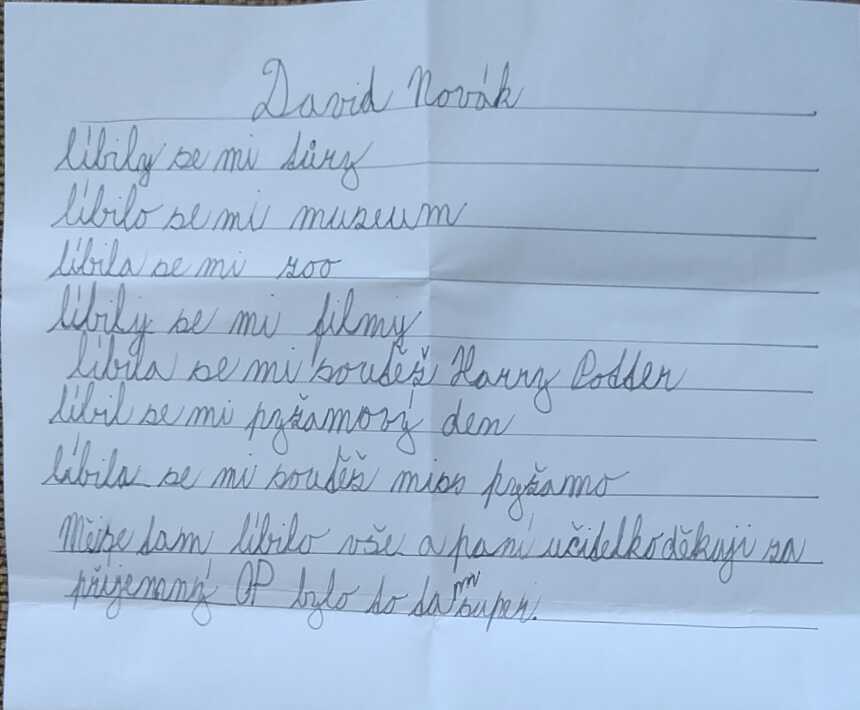 David Novák
líbily se mi túry
líbilo se mi museum
líbila se mi zoo
líbily se mi filmy
líbila se mi soutěž Harry Potter
líbil se mi pyžamový den
líbila se mi soutěž miss pyžamo
Mě se tam líbilo vše a paní učitelko děkuji za
příjemný OP bylo to tam super.